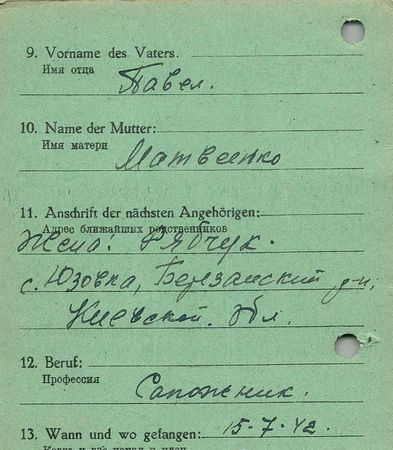 9. Vorname des Vaters.
Имя отца
Павел.
10. Name der Mutter:
Имя матери
Матвеенко
11. Anschrift der nächsten Angehörigen:
Адрес ближайших родственников
Жена: Рябчук.
с. Юзовка, Березанский р-н,
Киевской. Обл.
12. Beruf:
Профессия
Сапожник.
13. Wann und wo gefangen: 15-7-42.